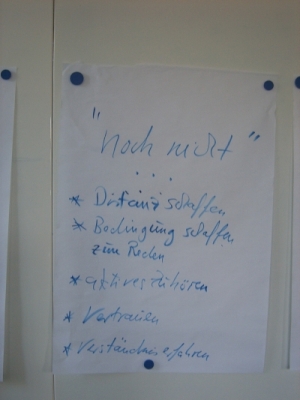 "noch nicht"
...
* Distanz schaffen
* Bedingung schaffen
zum Reden
* aktives Zuhören
* Vertrauen
* Verständnis erfahren